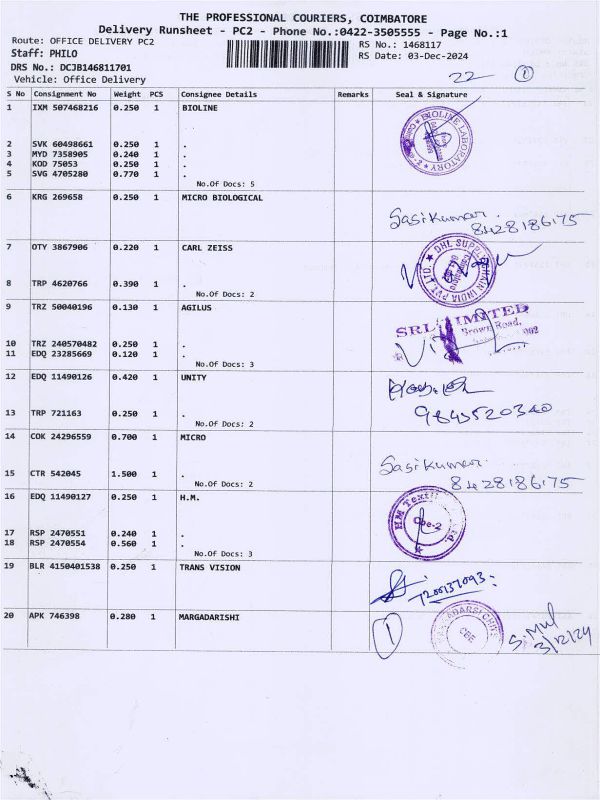 THE PROFESSIONAL COURIERS, COIMBATORE
Delivery Runsheet - PC2 - Phone No.:0422-3505555 - Page No.:1
Route: OFFICE DELIVERY PC2
RS No.: 1468117
Staff: PHILO
RS Date: 03-Dec-2024
DRS No.: DCJB146811701
Vehicle: Office Delivery
22 1
S No Consignment No Weight PCS Consignee Details Remarks Seal & Signature
1 IXM 507468216 0.250 1 BIOLINE
BIOLINE LABORATORY
2 SVK 60498661 0.250 1 .
3 MYD 7358905 0.240 1 .
4 KOD 75053 0.250 1 .
5 SVG 4705280 0.770 1 .
No.Of Docs: 5
6 KRG 269658 0.250 1 MICRO BIOLOGICAL
Sasikumar
8428186175
7 OTY 3867906 0.220 1 CARL ZEISS
DHL SUPPLY CHAIN INDIA PVT. LTD.
8 TRP 4620766 0.390 1 .
No.Of Docs: 2
9 TRZ 50040196 0.130 1 AGILUS
SRL LIMITED
Brown Road,
10 TRZ 240570482 0.250 1 .
11 EDQ 23285669 0.120 1 .
No.Of Docs: 3
12 EDQ 11490126 0.420 1 UNITY
13 TRP 721163 0.250 1 .
9843520340
No.Of Docs: 2
14 COK 24296559 0.700 1 MICRO
Sasikumar
15 CTR 542045 1.500 1 .
8428186175
No.Of Docs: 2
16 EDQ 11490127 0.250 1 H.M.
HM Textil
Cbe-2
17 RSP 2470551 0.240 1 .
18 RSP 2470554 0.560 1 .
No.Of Docs: 3
19 BLR 4150401538 0.250 1 TRANS VISION
7200137093
20 APK 746398 0.280 1 MARGADARISHI
1
CBE
3/12/24